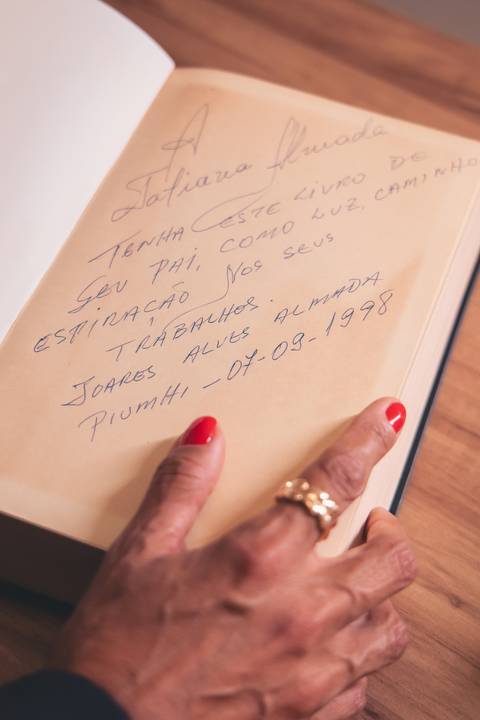 A
Tatiana Almada
TENHA ESTE LIVRO DE
SEU PAI, COMO LUZ, CAMINHO
ESPIRAÇÃO NOS SEUS
TRABALHOS.
JOARES ALVES ALMADA
PIUMHI - 07-09-1998